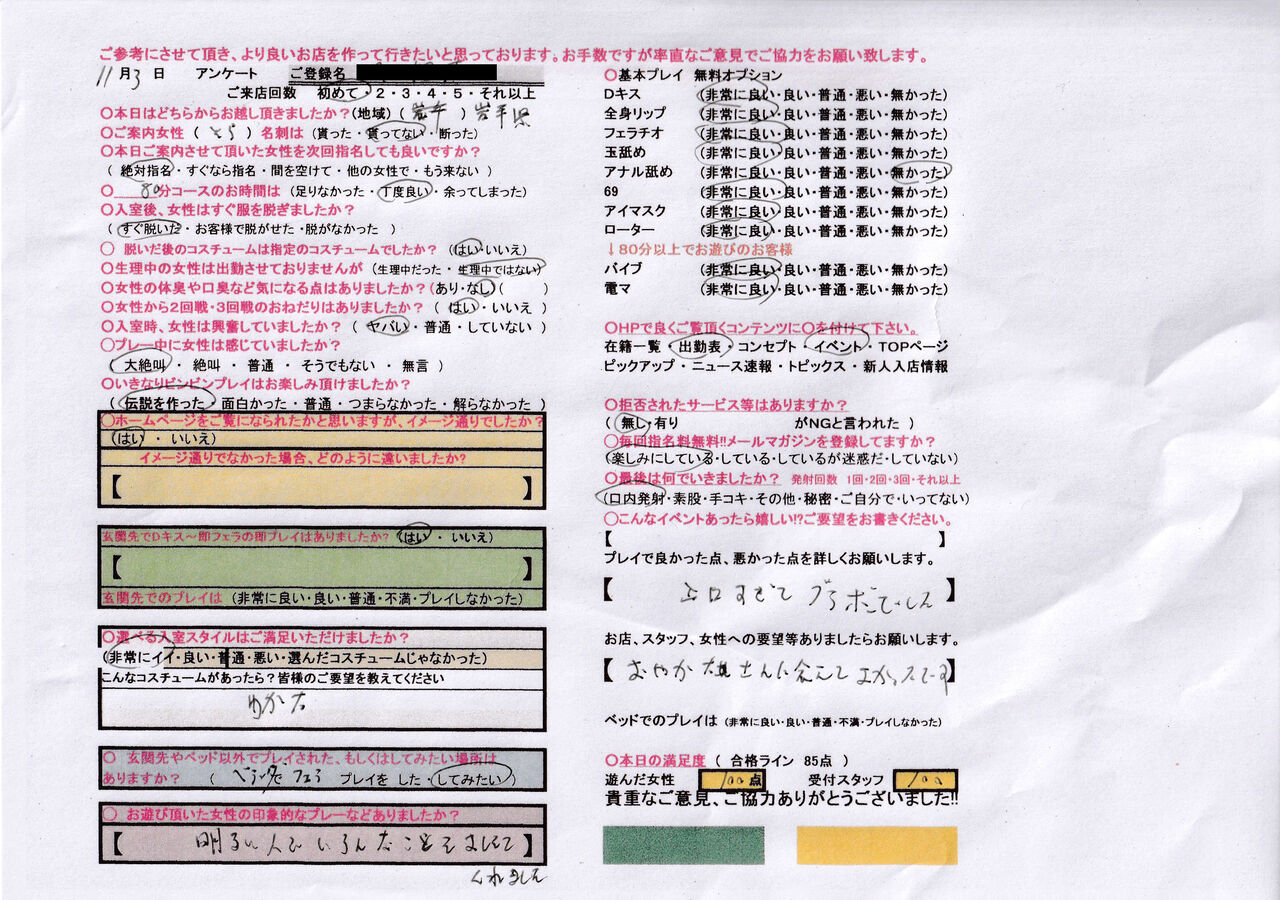 ご参考にさせて頂き、より良いお店を作って行きたいと思っております。お手数ですが率直なご意見でご協力をお願い致します。
11月3日 アンケート ご登録名
ご来店回数 初めて・2・3・4・5・それ以上
〇本日はどちらからお越し頂きましたか?(地域)( 岩手 ) 岩手県
〇ご案内女性 ( とら ) 名刺は (貰った・貰ってない・断った)
〇本日ご案内させて頂いた女性を次回指名しても良いですか?
( 絶対指名・すぐなら指名・間を空けて・他の女性で・もう来ない )
〇 80分コースのお時間は (足りなかった・丁度良い・余ってしまった)
〇入室後、女性はすぐ服を脱ぎましたか?
( すぐ脱いだ・お客様で脱がせた・脱がなかった )
〇 脱いだ後のコスチュームは指定のコスチュームでしたか? (はい・いいえ)
〇生理中の女性は出勤させておりませんが (生理中だった・生理中ではない)
〇女性の体臭や口臭など気になる点はありましたか?(あり・なし)( )
〇女性から2回戦・3回戦のおねだりはありましたか? ( はい・いいえ )
〇入室時、女性は興奮していましたか? ( ヤバい・普通・していない )
〇プレー中に女性は感じていましたか?
( 大絶叫・ 絶叫・ 普通・ そうでもない・ 無言 )
〇いきなりビンビンプレイはお楽しみ頂けましたか?
( 伝説を作った・面白かった・普通・つまらなかった・解らなかった )
〇ホームページをご覧になられたかと思いますが、イメージ通りでしたか?
(はい ・ いいえ)
イメージ通りでなかった場合、どのように違いましたか?
【 】
玄関先でDキス～即フェラの即プレイはありましたか? (はい ・ いいえ)
【 】
玄関先でのプレイは (非常に良い・良い・普通・不満・プレイしなかった)
〇選べる入室スタイルはご満足いただけましたか?
(非常にイイ・良い・普通・悪い・選んだコスチュームじゃなかった)
こんなコスチュームがあったら?皆様のご要望を教えてください
ゆかた
〇 玄関先やベッド以外でプレイされた、もしくはしてみたい場所は
ありますか? ( ベランダで フェラ プレイを した・してみたい )
〇 お遊び頂いた女性の印象的なプレーなどありましたか?
【 明るい人でいろんなことをしてくれました 】
〇基本プレイ 無料オプション
Dキス (非常に良い・良い・普通・悪い・無かった)
全身リップ (非常に良い・良い・普通・悪い・無かった)
フェラチオ (非常に良い・良い・普通・悪い・無かった)
玉舐め (非常に良い・良い・普通・悪い・無かった)
アナル舐め (非常に良い・良い・普通・悪い・無かった)
69 (非常に良い・良い・普通・悪い・無かった)
アイマスク (非常に良い・良い・普通・悪い・無かった)
ローター (非常に良い・良い・普通・悪い・無かった)
↓80分以上でお遊びのお客様
バイブ (非常に良い・良い・普通・悪い・無かった)
電マ (非常に良い・良い・普通・悪い・無かった)
〇HPで良くご覧頂くコンテンツに〇を付けて下さい。
在籍一覧・出勤表・コンセプト・イベント・TOPページ
ピックアップ・ニュース速報・トピックス・新人入店情報
〇拒否されたサービス等はありますか?
( 無し・有り がNGと言われた )
〇毎回指名料無料!!メールマガジンを登録してますか?
(楽しみにしている・している・しているが迷惑だ・していない)
〇最後は何でいきましたか? 発射回数 1回・2回・3回・それ以上
(口内発射・素股・手コキ・その他・秘密・ご自分で・いってない)
〇こんなイベントあったら嬉しい!?ご要望をお書きください。
【 】
プレイで良かった点、悪かった点を詳しくお願いします。
【 エロすぎて 】
お店、スタッフ、女性への要望等ありましたらお願いします。
【 さんに会えてよかったです 】
ベッドでのプレイは (非常に良い・良い・普通・不満・プレイしなかった)
〇本日の満足度 ( 合格ライン 85点 )
遊んだ女性 100点 受付スタッフ 100
貴重なご意見、ご協力ありがとうございました!!